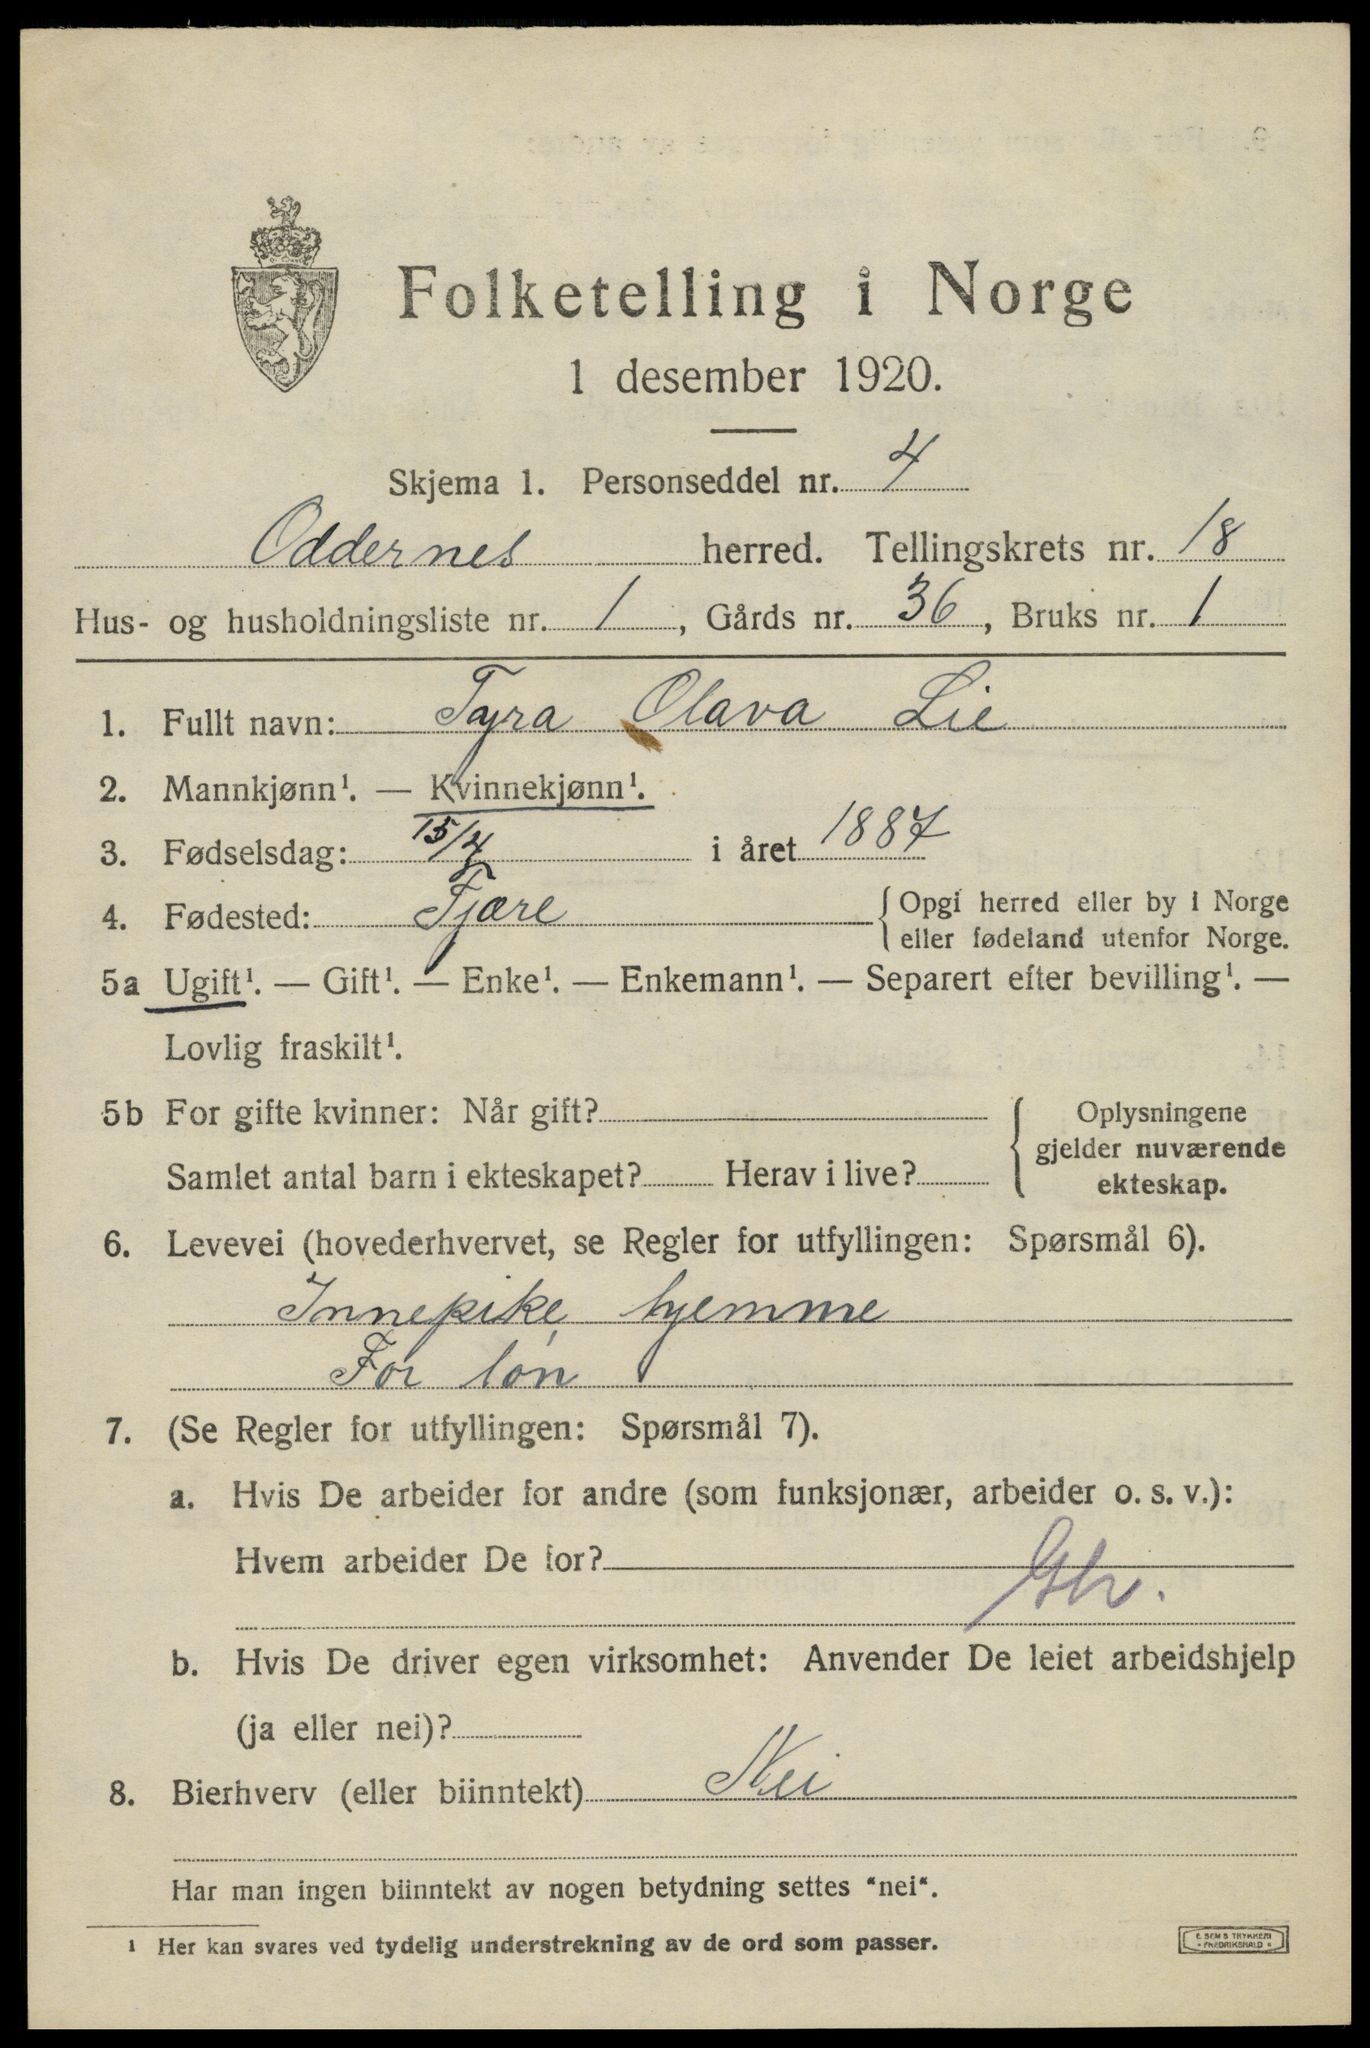 Folketelling i Norge
1 desember 1920.
Skjema 1. Personseddel nr. 4
Oddernes herred. Tellingskrets nr. 18
Hus- og husholdningsliste nr. 1, Gårds nr. 36, Bruks nr. 1
1. Fullt navn: Tyra Olava Lie
2. Mannkjønn¹. — Kvinnekjønn¹.
3. Fødselsdag: 15/4 i året 1887
4. Fødested: Fjære { Opgi herred eller by i Norge
eller fødeland utenfor Norge.
5a Ugift¹. — Gift¹. — Enke¹. — Enkemann¹. — Separert efter bevilling¹. —
Lovlig fraskilt¹.
5b For gifte kvinner: Når gift? { Oplysningene
gjelder nuværende
Samlet antal barn i ekteskapet? Herav i live? ekteskap.
6. Levevei (hovederhvervet, se Regler for utfyllingen: Spørsmål 6).
Innepike hjemme
For løn
7. (Se Regler for utfyllingen: Spørsmål 7).
a. Hvis De arbeider for andre (som funksjonær, arbeider o. s. v.):
Hvem arbeider De for?
b. Hvis De driver egen virksomhet: Anvender De leiet arbeidshjelp
(ja eller nei)?
8. Bierhverv (eller biinntekt) Nei
Har man ingen biinntekt av nogen betydning settes "nei".
¹ Her kan svares ved tydelig understrekning av de ord som passer.
E. SEM'S TRYKKERI
• FREDRIKSHALD •